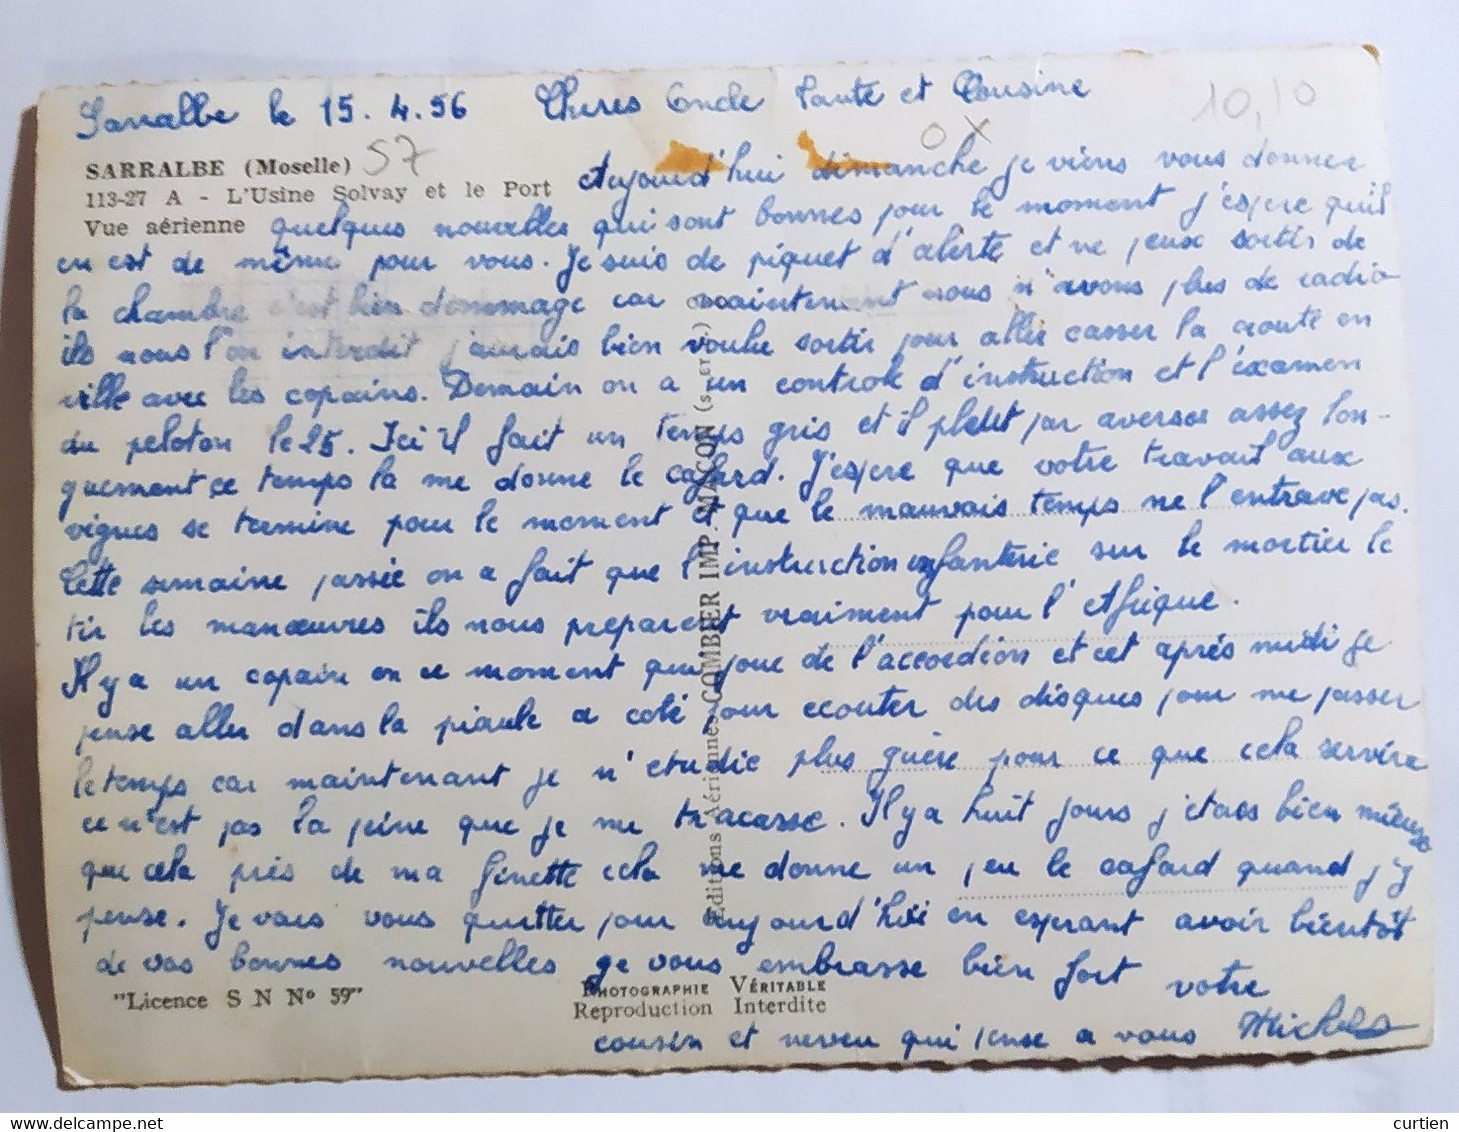 Sarralbe le 15.4.56 Chères Oncle Tante et Cousine
10,10
O X
SARRALBE (Moselle) 57
113-27 A - L'Usine Solvay et le Port
Vue aérienne
Aujourd'hui dimanche je viens vous donner
quelques nouvelles qui sont bonnes pour le moment j'espère qu'il
en est de même pour vous. Je suis de piquet d'alerte et ne peux sortir de
la chambre c'est bien dommage car maintenant nous n'avons plus de radio
ils nous l'on interdit j'aurais bien voulu sortir pour aller casser la croute en
ville avec les copains. Demain on a un controle d'instruction et l'éxamen
du peloton le 25. Ici il fait un temps gris et il pleut par averses assez lon-
guement ce temps là me donne le cafard. J'espere que votre travail aux
vignes se termine pour le moment et que le mauvais temps ne l'entrave pas.
Cette semaine passée on a fait que l'instruction infanterie sur le mortier le
tir les manœuvres ils nous preparent vraiment pour l'Afrique.
Il y a un copain en ce moment qui joue de l'accordéon et cet après midi je
pense aller dans la piaule a coté pour ecouter des disques pour me passer
le temps car maintenant je n'etudie plus guère pour ce que cela servira
ce n'est pas la peine que je me tracasse. Il y a huit jours j'etais bien mieux
que cela près de ma Ginette cela me donne un peu le cafard quand j'y
pense. Je vais vous quitter pour aujourd'hui en esperant avoir bientôt
de vos bonnes nouvelles je vous embrasse bien fort votre
cousin et neveu qui pense a vous Michel
"Licence S N N° 59"
PHOTOGRAPHIE VÉRITABLE
Reproduction Interdite
Editions Aériennes COMBIER IMP. MACON (S. ET L.)
curtien